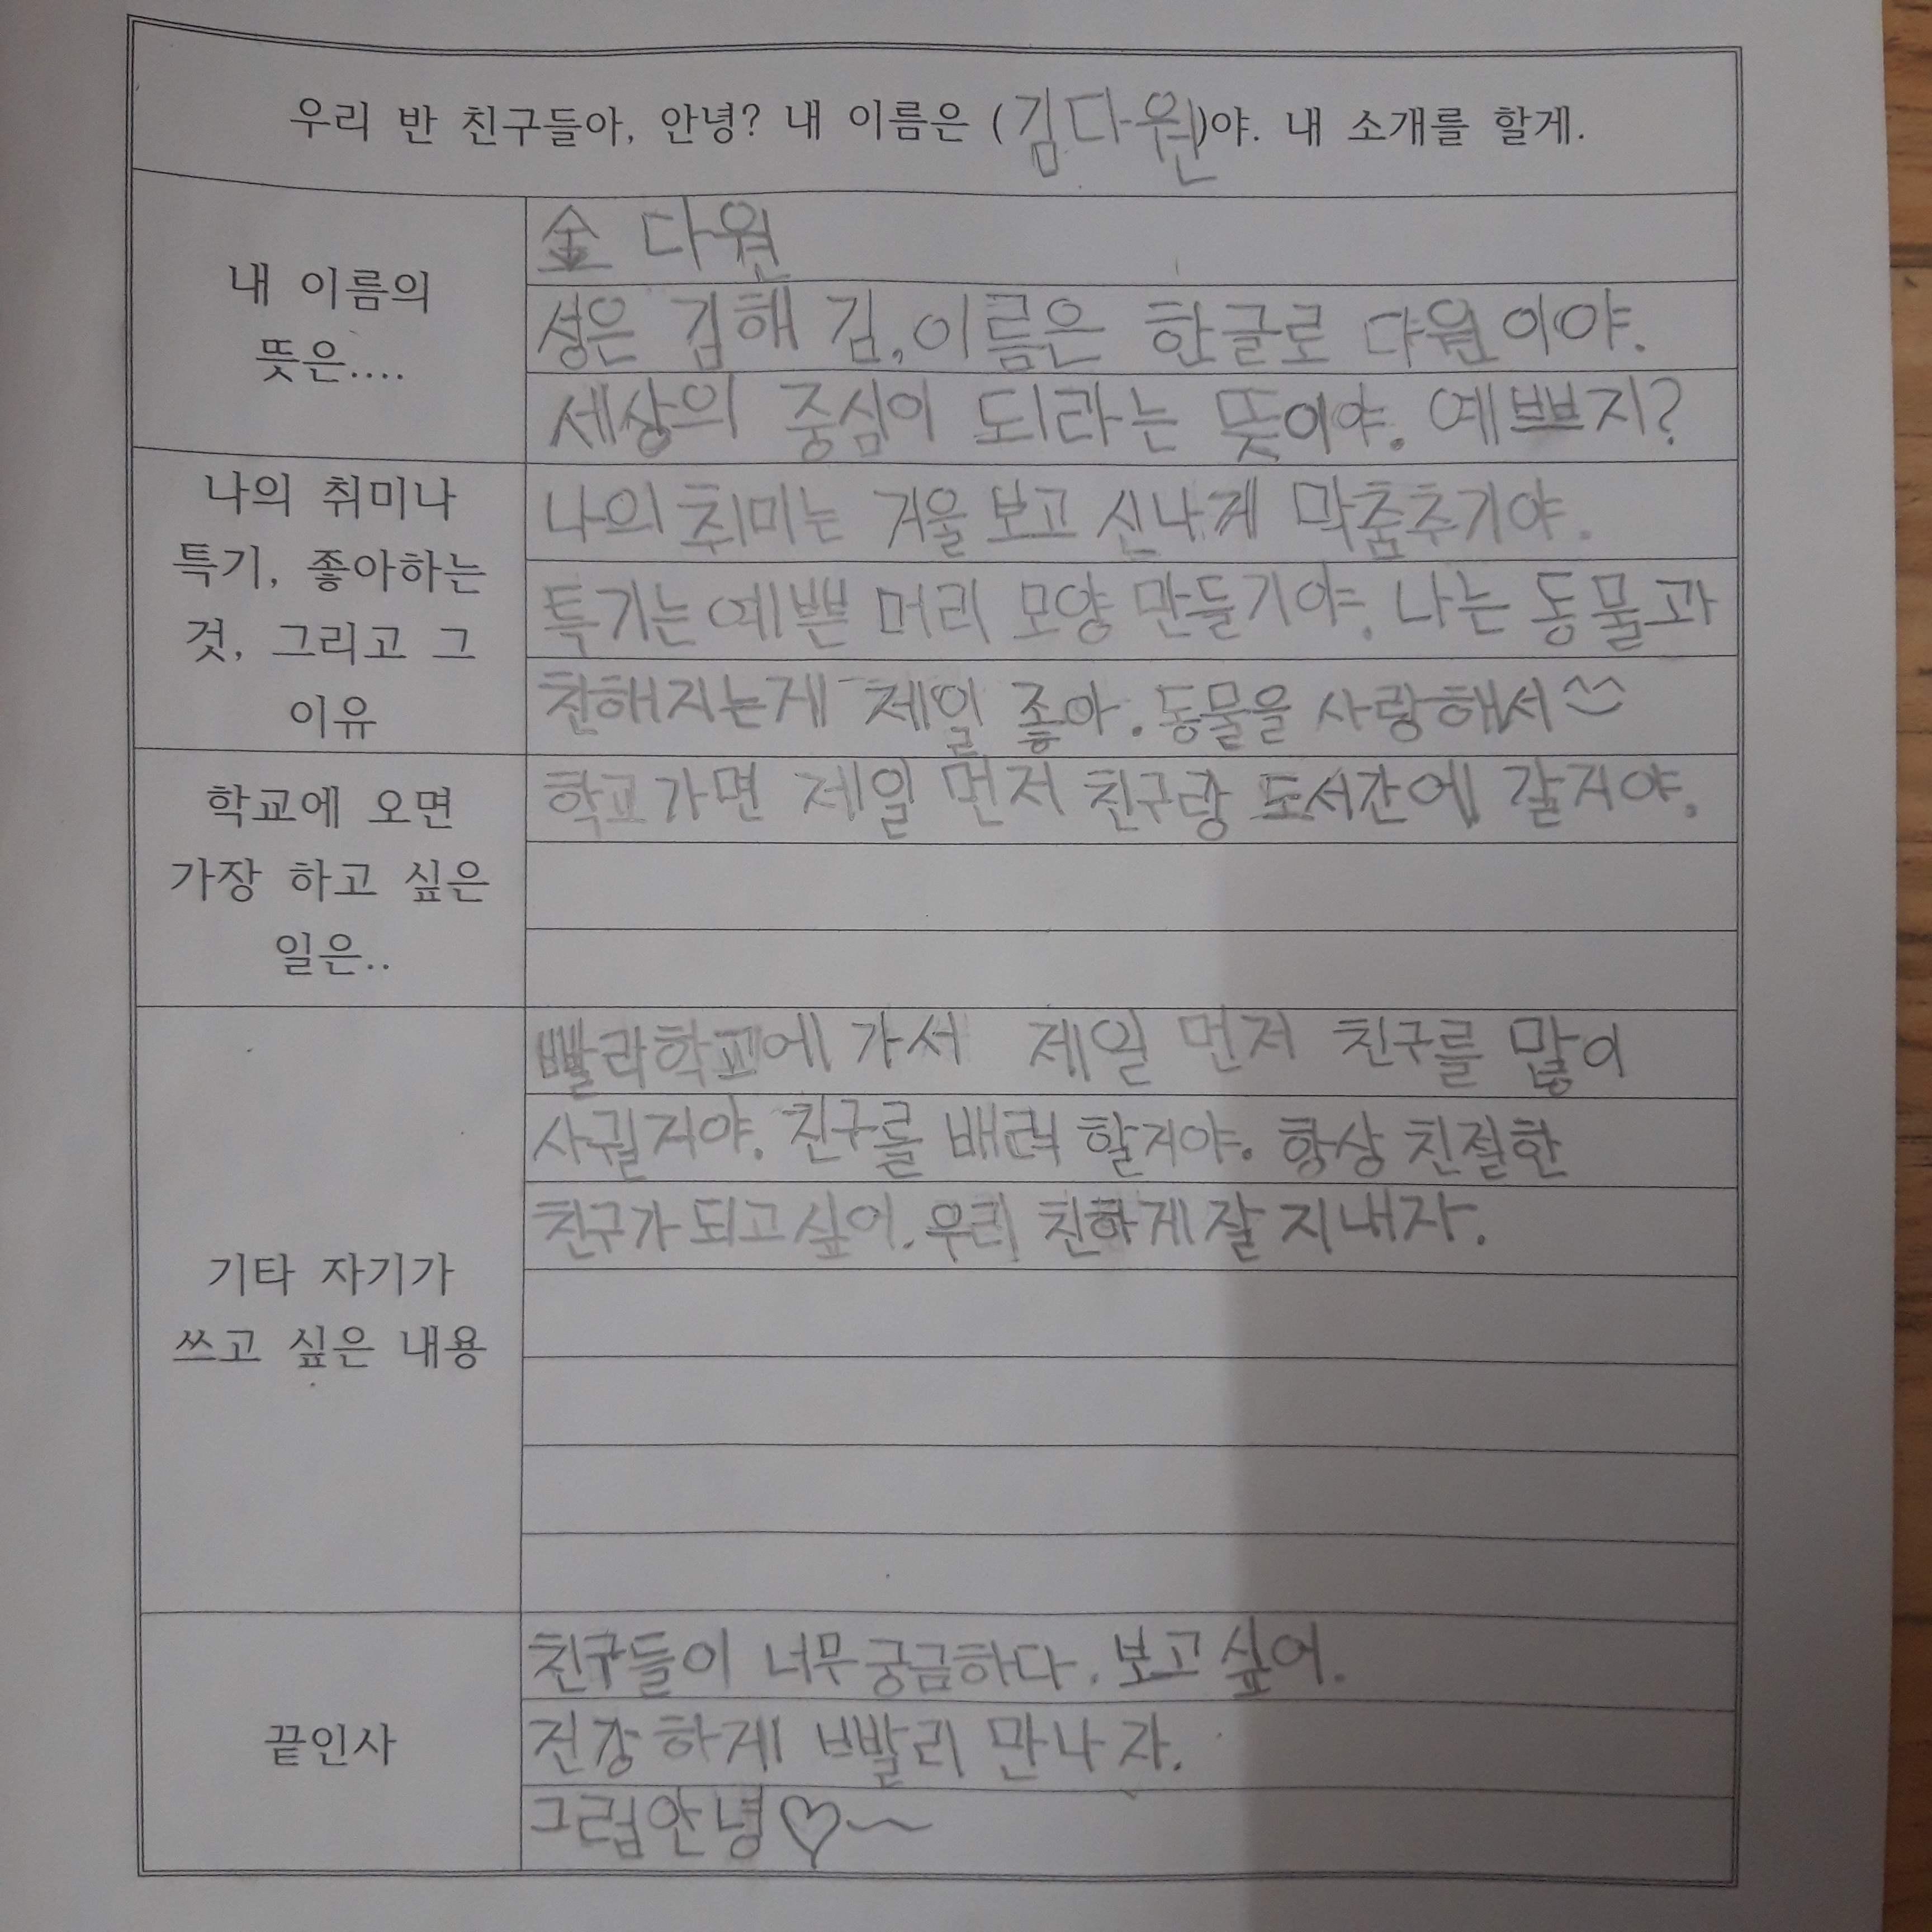 우리 반 친구들아, 안녕? 내 이름은 (김다원)야. 내 소개를 할게.
내 이름의
뜻은....
金 다원
성은 김해 김, 이름은 한글로 다원이야.
세상의 중심이 되라는 뜻이야. 예쁘지?
나의 취미나
특기, 좋아하는
것, 그리고 그
이유
나의 취미는 거울 보고 신나게 막춤추기야.
특기는 예쁜 머리 모양 만들기야. 나는 동물과
친해지는게 제일 좋아. 동물을 사랑해서^^
학교에 오면
가장 하고 싶은
일은..
학교가면 제일 먼저 친구랑 도서간에 갈거야.
기타 자기가
쓰고 싶은 내용
빨라학교에 가서 제일 먼저 친구를 많이
사귈거야. 친구를 배려 할거야. 항상 친절한
친구가 되고싶어. 우리 친하게 잘 지내자.
끝인사
친구들이 너무 궁금하다. 보고싶어.
건강하게 빨리 만나자.
그럼안녕♡~